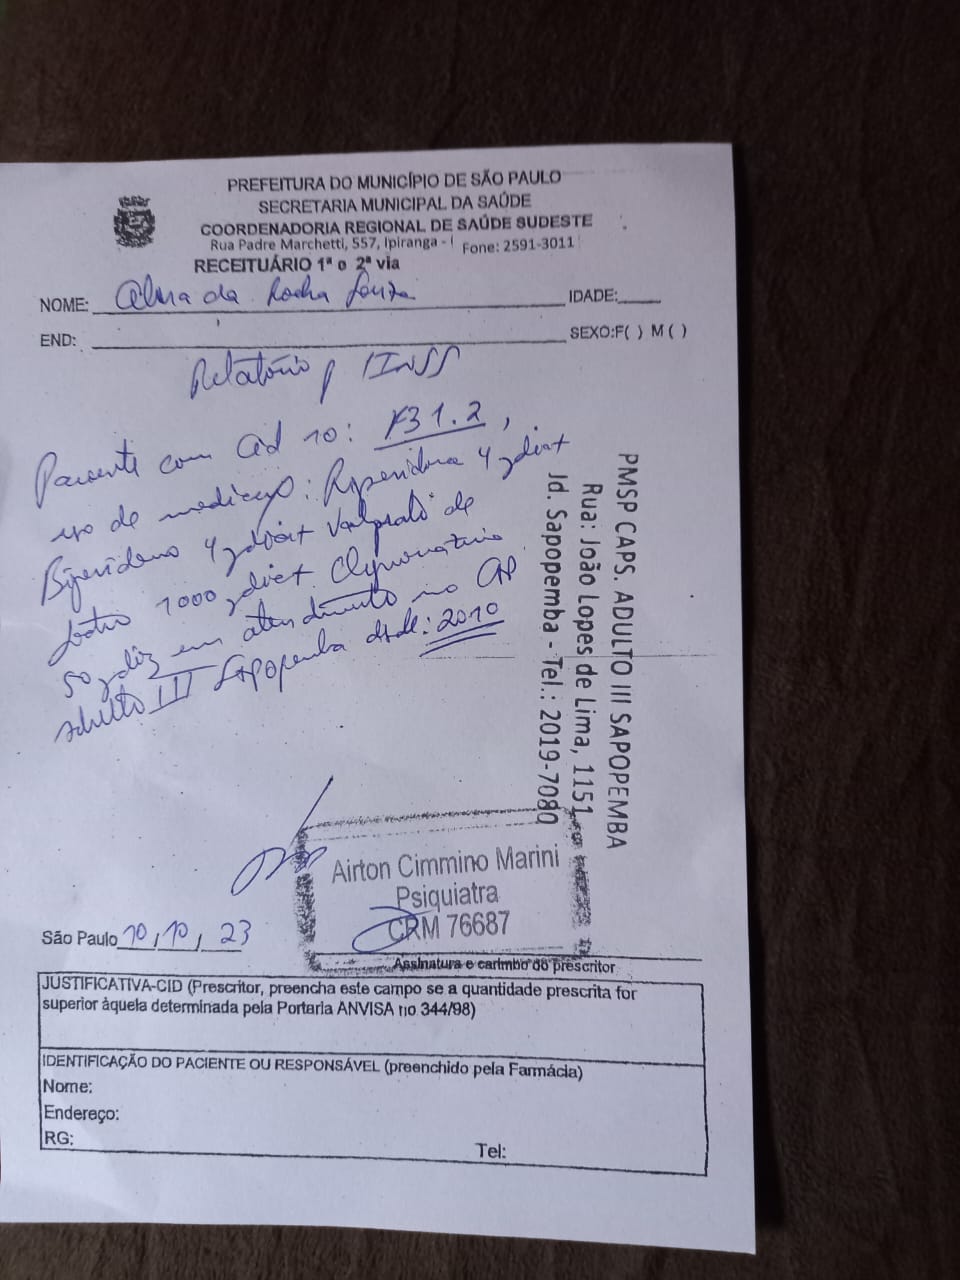 PREFEITURA DO MUNICÍPIO DE SÃO PAULO
SECRETARIA MUNICIPAL DA SAÚDE
COORDENADORIA REGIONAL DE SAÚDE SUDESTE
Rua Padre Marchetti, 557, Ipiranga - Fone: 2591-3011
RECEITUÁRIO 1ª o 2ª via
NOME: da Rocha Souza IDADE:
END: SEXO:F( ) M ( )
Relatório p/ INSS
Paciente com Cid 10: F31.2,
uso de medicação: Risperidona 4
Biperideno 4 Valproato de
1000
50 em atendimento no
Adulto III Sapopemba desde: 2010
PMSP CAPS. ADULTO III SAPOPEMBA
Rua: João Lopes de Lima, 1151
Jd. Sapopemba - Tel.: 2019-7080
Airton Cimmino Marini
Psiquiatra
CRM 76687
São Paulo 10, 10, 23
Assinatura e carimbo do prescritor
JUSTIFICATIVA-CID (Prescritor, preencha este campo se a quantidade prescrita for
superior àquela determinada pela Portaria ANVISA no 344/98)
IDENTIFICAÇÃO DO PACIENTE OU RESPONSÁVEL (preenchido pela Farmácia)
Nome:
Endereço:
RG:
Tel: